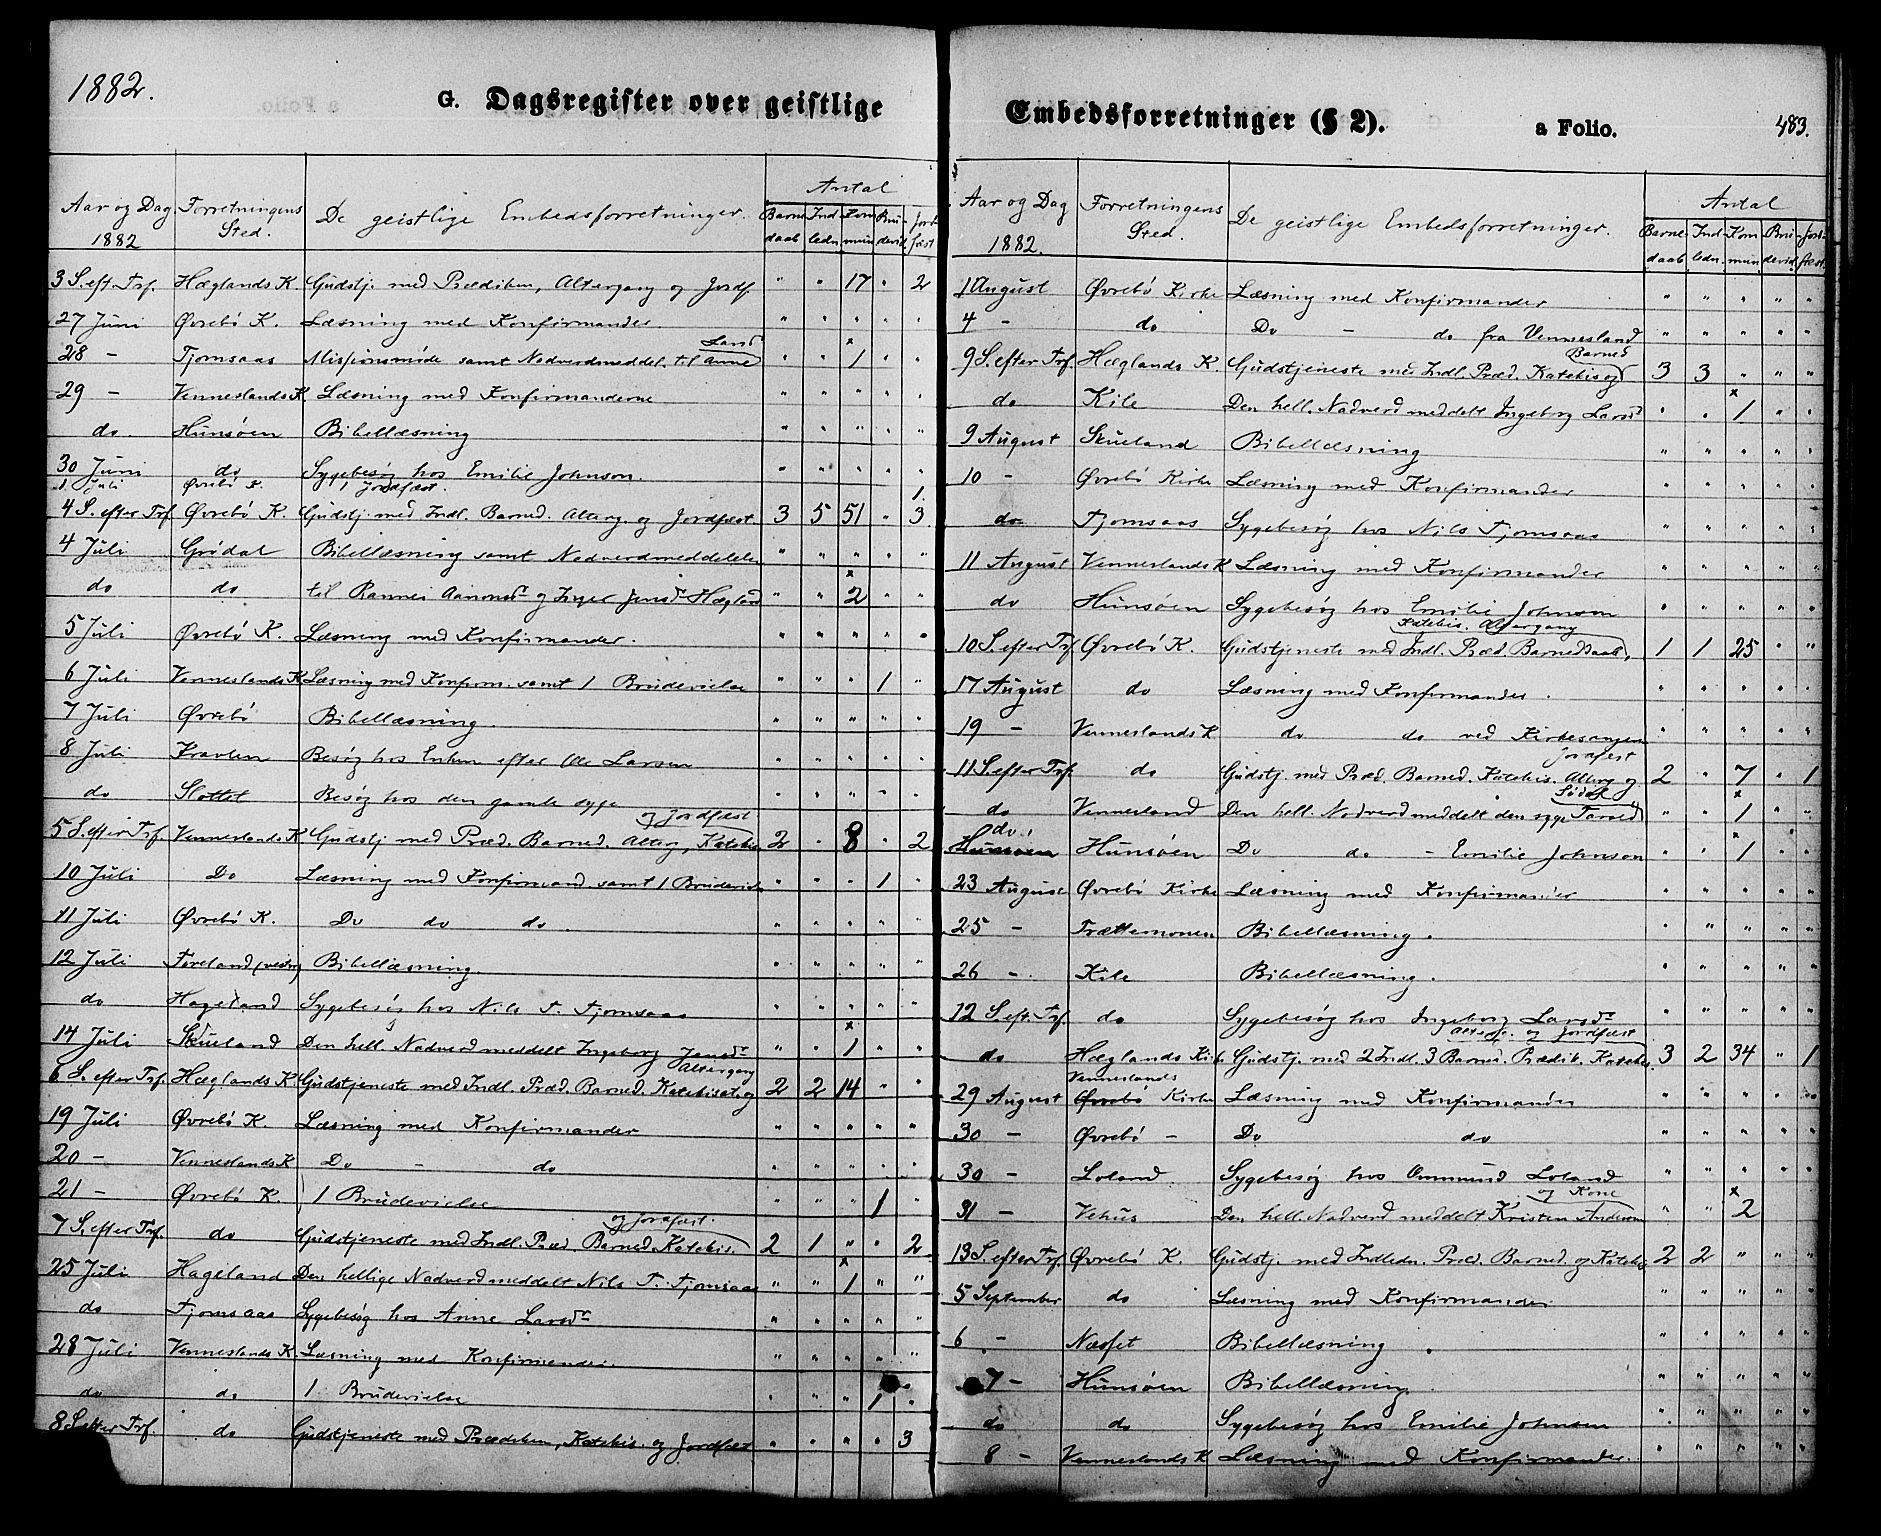 1882.
G. Dagsregister over geistlige
Antal
Aar og Dag Forretningens Sted. De geistlige Embedsforretninger. Barne Ind Kom Bru- Jord-
1882 daab ledn. mun devid. fæst
3 S. eft. Trf. Hæglands K. Gudstj. med Prædiken, Altergang og Jordf. " " 17 " 2
27 Juni Øvrebö K. Læsning med Konfirmander. " " " " "
Larsd
28 - Tjomsaas Missionsmöde samt Nadverdmeddel. til Anne " " x 1 " "
29 - Venneslands K. Læsning med Konfirmanderne " " " " "
do. Hunsöen Bibellæsning " " " " "
30 Juni do Sygebesög hos Emilie Johnson. " " " " "
1 Juli Øvrebö K. 1 Jordfæst. 1
4 S. efter Trf. Øvrebö K. Gudstj. med Indl. Barned. Alterg. og Jordfæst 3 5 51 " 3
4 Juli Grödal Bibellæsning samt Nadverdmeddelelse " " " " "
do do til Rannei Aanonsd og Inger Jensd Hægland " " x 2 " "
5 Juli Øvrebö K. Læsning med Konfirmander. " " " " "
6 Juli Venneslands K. Læsning med Konfirm. samt 1 Brudevielse " " " 1 "
7 Juli Øvrebö Bibellæsning. " " " " "
8 Juli Kravlen Besög hos Enken efter Ole Larsen " " " " "
do Slottet Besög hos den gamle syge " " " " "
og Jordfæst
5 S. efter Trf. Venneslands K. Gudstj med Præd. Barned. Alterg, Katekis 2 " 8 " 2
10 Juli Do Læsning med Konfirmand. samt 1 Brudevielse " " " 1 "
11 Juli Øvrebö K. Do do do. " " " " "
12 Juli Föreland, vestre Bibellæsning. " " " " "
do Hageland Sygebesög hos Nils T. Tjomsaas " " " " "
14 Juli Skueland Den hell. Nadverd meddelt Ingeborg Jensd " " x 1 " "
Altergang
6 S. efter Trf. Hæglands K. Gudstjeneste med Indl. Præd. Barned. Katekisat. og 2 2 14 " "
19 Juli Øvrebö K. Læsning med Konfirmander " " " " "
20 - Venneslands K Do - do " " " " "
21 - Øvrebö K. 1 Brudevielse " " " 1 "
og Jordfæst.
7 S. efter Trf. do Gudstjeneste med Indl. Præd. Barned. Katekis. 2 1 " " 2
25 Juli Hageland Den hellige Nadverd meddelt Nils T. Tjomsaas " " x 1 " "
do Tjomsaas Sygebesög hos Anne Larsd " " " " "
28 Juli Venneslands K. Læsning med Konfirmander. " " " " "
do do 1 Brudevielse " " " 1 "
8 S. efter Trf. do Gudstjeneste med Prædiken, Katekis. og Jordfæst " " " " 3
Embedsforretninger (§ 2). a Folio. 483.
Antal
Aar og Dag Forretningens Sted. De geistlige Embedsforretninger. Barne- Ind- Kom Bru- Jord-
1882. daab ledn. mun devid. fæst.
1 August Øvrebö Kirke Læsning med Konfirmander " " " " "
4 - do Do - do fra Vennesland " " " " "
Barned
9 S. efter Trf. Hæglands K Gudstjeneste med Indl. Præd. Katekis og 3 3 " " "
do Kile Den hell. Nadverd meddelt Ingeborg Larsd " " x 1 " "
9 August Skueland Bibellæsning " " " " "
10 - Øvrebö Kirke Læsning med Konfirmander " " " " "
do Tjomsaas Sygebesög hos Nils Tjomsaas " " " " "
11 August Venneslands K Læsning med Konfirmander " " " " "
do Hunsöen Sygebesög hos Emilie Johnson " " " " "
Katekis. Altergang
10 S. efter Trf. Øvrebö K. Gudstjeneste med Indl. Præd. Barnedaab, 1 1 25 " "
17 August do Læsning med Konfirmander. " " " " "
19 - Venneslands K do do ved Kirkesangeren " " " " "
Jordfest
11 S. efter Trf. do Gudstj. med Præd. Barned. Katekis. Alterg og 2 " 7 " 1
Södal
do Vennesland Den hell. Nadverd meddelt den syge Tarald " " x 1 " "
do Hunsöen Do do - Emilie Johnson " " x 1 " "
23 August Øvrebö Kirke Læsning med Konfirmander " " " " "
25 - Trættemonen Bibellæsning. " " " " "
26 - Kile Bibellæsning. " " " " "
12 S. eft. Trf. do Sygebesög hos Ingeborg Larsd " " " " "
Alterg. og Jordfæst
do Hæglands Kirk. Gudstj. med 2 Indl. 3 Barned. Prædik. Katekis. 3 2 34 " 1
Venneslands
29 August Øvrebö Kirke Læsning med Konfirmander " " " " "
30 - Øvrebö - Do do " " " " "
30 - Loland. Sygebesög hos Ommund Loland " " " " "
og Kone
31 - Vehus Den hell. Nadverd meddelt Kristen Andersen " " x 2
13 S. efter Trf. Øvrebö K. Gudstj. med Indledn. Præd. Barned. og Katekis 2 2 " " "
5 September do Læsning med Konfirmander " " " " "
6 - Næsset Bibellæsning. " " " " "
7 - Hunsöen Bibellæsning. " " " " "
do do Sygebesög hos Emilie Johnsen " " " " "
8 - Venneslands K Læsning med Konfirmander. " " " " "